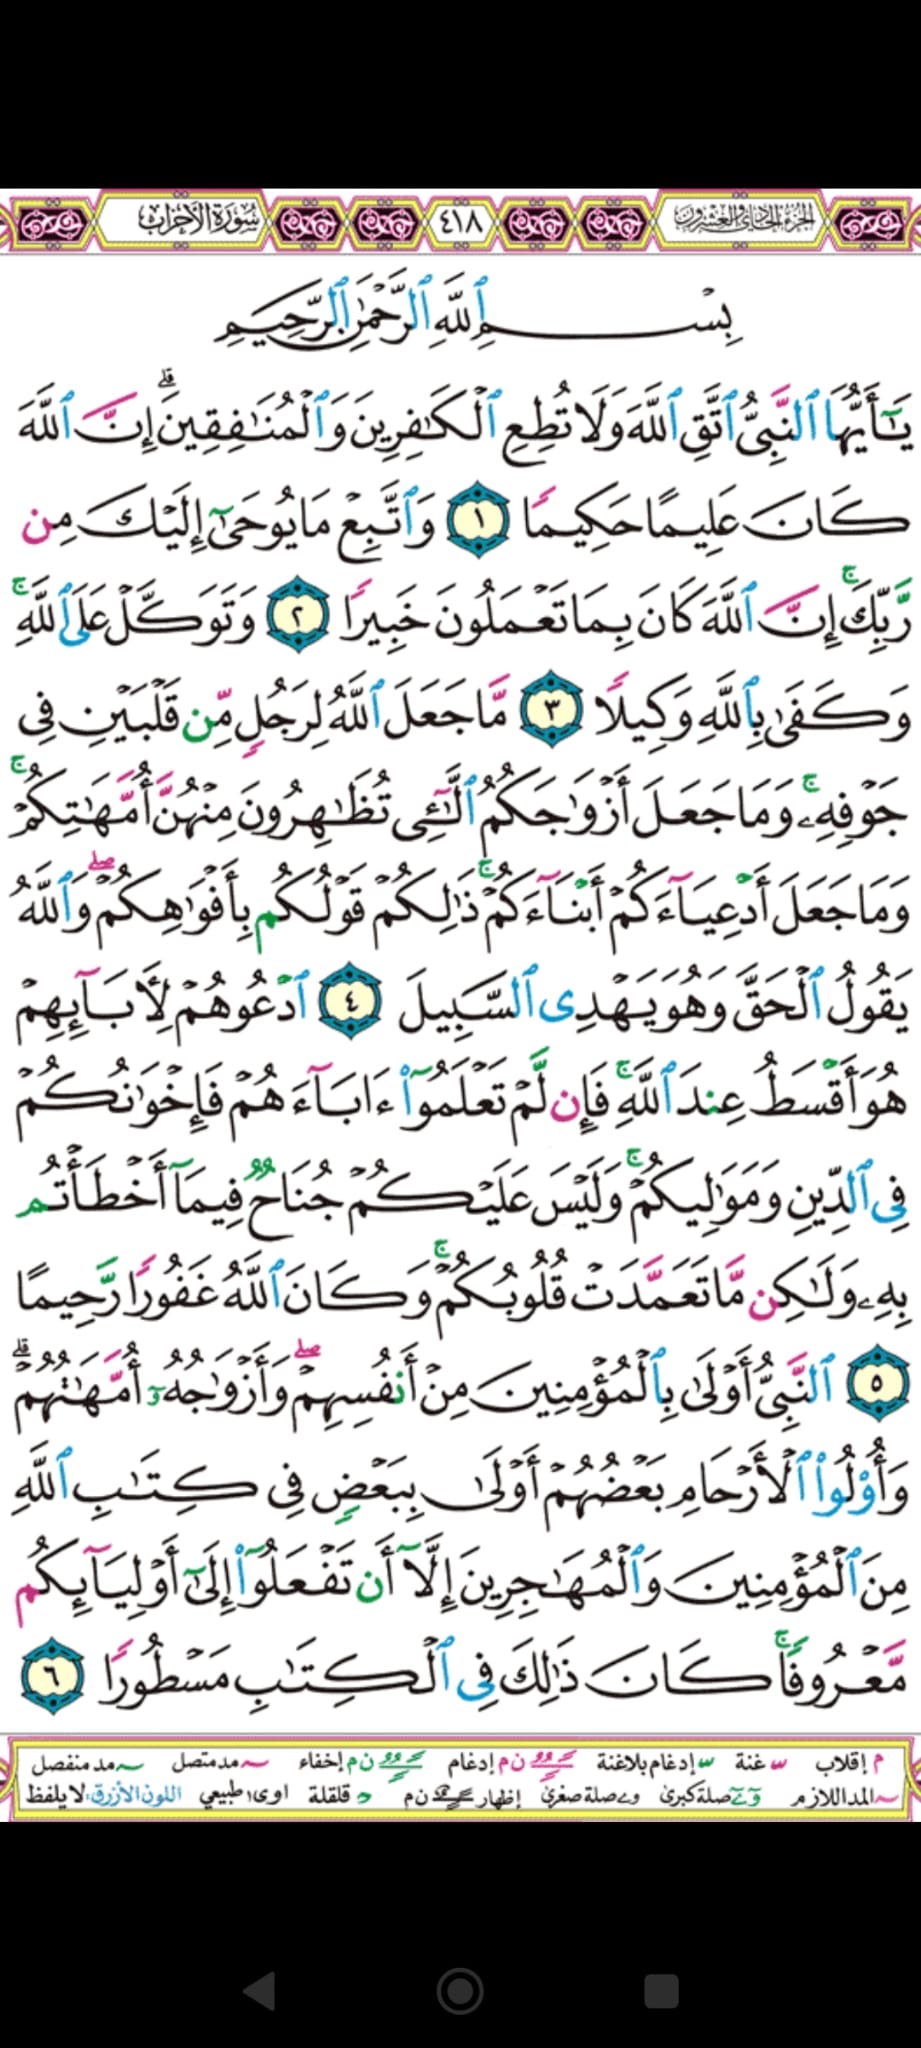 الجزء الحادي والعشرون ٤١٨ سورة الأحزاب
بِسْمِ ٱللَّهِ ٱلرَّحْمَٰنِ ٱلرَّحِيمِ
يَـٰٓأَيُّهَا ٱلنَّبِىُّ ٱتَّقِ ٱللَّهَ وَلَا تُطِعِ ٱلْكَـٰفِرِينَ وَٱلْمُنَـٰفِقِينَ ۗ إِنَّ ٱللَّهَ
كَانَ عَلِيمًا حَكِيمًا ١ وَٱتَّبِعْ مَا يُوحَىٰٓ إِلَيْكَ مِن
رَّبِّكَ ۚ إِنَّ ٱللَّهَ كَانَ بِمَا تَعْمَلُونَ خَبِيرًا ٢ وَتَوَكَّلْ عَلَى ٱللَّهِ ۚ
وَكَفَىٰ بِٱللَّهِ وَكِيلًا ٣ مَّا جَعَلَ ٱللَّهُ لِرَجُلٍ مِّن قَلْبَيْنِ فِى
جَوْفِهِۦ ۚ وَمَا جَعَلَ أَزْوَٰجَكُمُ ٱلَّـٰٓـِٔى تُظَـٰهِرُونَ مِنْهُنَّ أُمَّهَـٰتِكُمْ ۚ
وَمَا جَعَلَ أَدْعِيَآءَكُمْ أَبْنَآءَكُمْ ۚ ذَٰلِكُمْ قَوْلُكُم بِأَفْوَٰهِكُمْ ۖ وَٱللَّهُ
يَقُولُ ٱلْحَقَّ وَهُوَ يَهْدِى ٱلسَّبِيلَ ٤ ٱدْعُوهُمْ لِـَٔابَآئِهِمْ
هُوَ أَقْسَطُ عِندَ ٱللَّهِ ۚ فَإِن لَّمْ تَعْلَمُوٓا۟ ءَابَآءَهُمْ فَإِخْوَٰنُكُمْ
فِى ٱلدِّينِ وَمَوَٰلِيكُمْ ۚ وَلَيْسَ عَلَيْكُمْ جُنَاحٌ فِيمَآ أَخْطَأْتُم
بِهِۦ وَلَـٰكِن مَّا تَعَمَّدَتْ قُلُوبُكُمْ ۚ وَكَانَ ٱللَّهُ غَفُورًا رَّحِيمًا
٥ ٱلنَّبِىُّ أَوْلَىٰ بِٱلْمُؤْمِنِينَ مِنْ أَنفُسِهِمْ ۖ وَأَزْوَٰجُهُۥٓ أُمَّهَـٰتُهُمْ ۗ
وَأُو۟لُوا۟ ٱلْأَرْحَامِ بَعْضُهُمْ أَوْلَىٰ بِبَعْضٍ فِى كِتَـٰبِ ٱللَّهِ
مِنَ ٱلْمُؤْمِنِينَ وَٱلْمُهَـٰجِرِينَ إِلَّآ أَن تَفْعَلُوٓا۟ إِلَىٰٓ أَوْلِيَآئِكُم
مَّعْرُوفًا ۚ كَانَ ذَٰلِكَ فِى ٱلْكِتَـٰبِ مَسْطُورًا ٦
م إقلاب غنة إدغام بلاغنة ن م إدغام ن م إخفاء مد متصل مد منفصل
المد اللازم صلة كبرى صلة صغرى إظهار ن م قلقلة اوى طبيعي اللون الأزرق: لا يلفظ